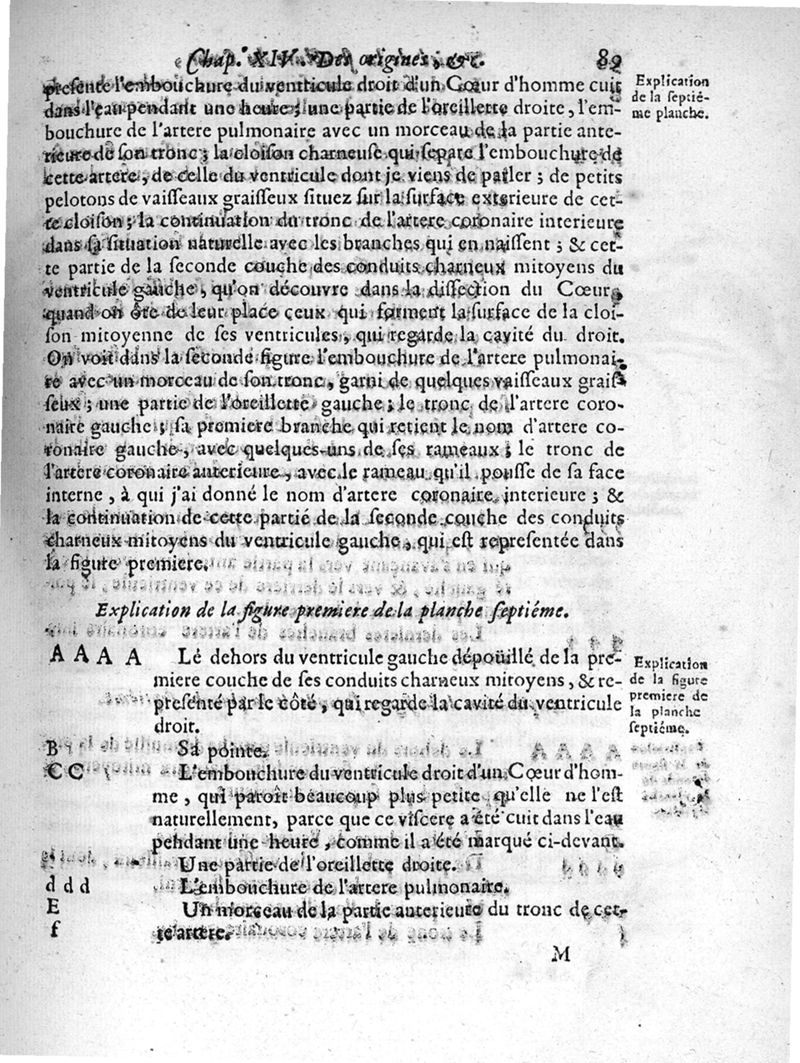 Chap. XIV. Des origines, &c. 89
presente l'embouchure du ventricule droit d'un Cœur d'homme cuit
dans l'eau pendant une heure; une partie de l'oreillette droite, l'em-
bouchure de l'artere pulmonaire avec un morceau de la partie ante-
rieure de son tronc; la cloison charneuse qui separe l'embouchure de
cette artere, de celle du ventricule dont je viens de parler; de petits
pelotons de vaisseaux graisseux situez sur la surface exterieure de cet-
te cloison; la continuation du tronc de l'artere coronaire interieure
dans sa situation naturelle avec les branches qui en naissent; & cet-
te partie de la seconde couche des conduits charneux mitoyens du
ventricule gauche, qu'on découvre dans la dissection du Cœur,
quand on ôte de leur place ceux qui forment la surface de la cloi-
son mitoyenne de ses ventricules, qui regarde la cavité du droit.
On voit dans la seconde figure l'embouchure de l'artere pulmonai-
re avec un morceau de son tronc, garni de quelques vaisseaux grais-
seux; une partie de l'oreillette gauche; le tronc de l'artere coro-
naire gauche; sa premiere branche qui retient le nom d'artere co-
ronaire gauche, avec quelques-uns de ses rameaux; le tronc de
l'artere coronaire anterieure, avec le rameau qu'il pousse de sa face
interne, à qui j'ai donné le nom d'artere coronaire interieure; &
la continuation de cette partie de la seconde couche des conduits
charneux mitoyens du ventricule gauche, qui est representée dans
la figure premiere.
Explication
de la septié-
me planche.
Explication de la figure premiere de la planche septiéme.
A A A A Le dehors du ventricule gauche dépoüillé de la pre-
miere couche de ses conduits charneux mitoyens, & re-
presenté par le côté, qui regarde la cavité du ventricule
droit.
Explication
de la figure
premiere de
la planche
septiéme.
B Sa pointe.
C C L'embouchure du ventricule droit d'un Cœur d'hom-
me, qui paroît beaucoup plus petite, qu'elle ne l'est
naturellement, parce que ce viscere a été cuit dans l'eau
pendant une heure, comme il a été marqué ci-devant.
Une partie de l'oreillette droite.
d d d L'embouchure de l'artere pulmonaire.
E Un morceau de la partie anterieure du tronc de cet-
f te artere.
M